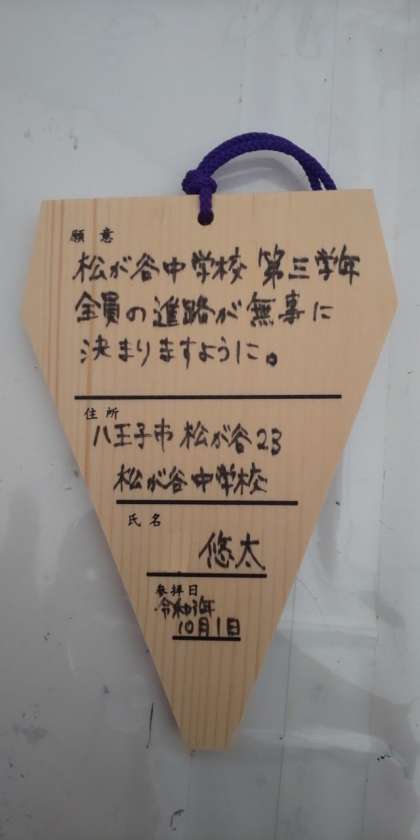 願意
松が谷中学校 第三学年
全員の進路が無事に
決まりますように。
住所
八王子市 松が谷23
松が谷中学校
氏名
悠太
参拝日
令和
10月1日